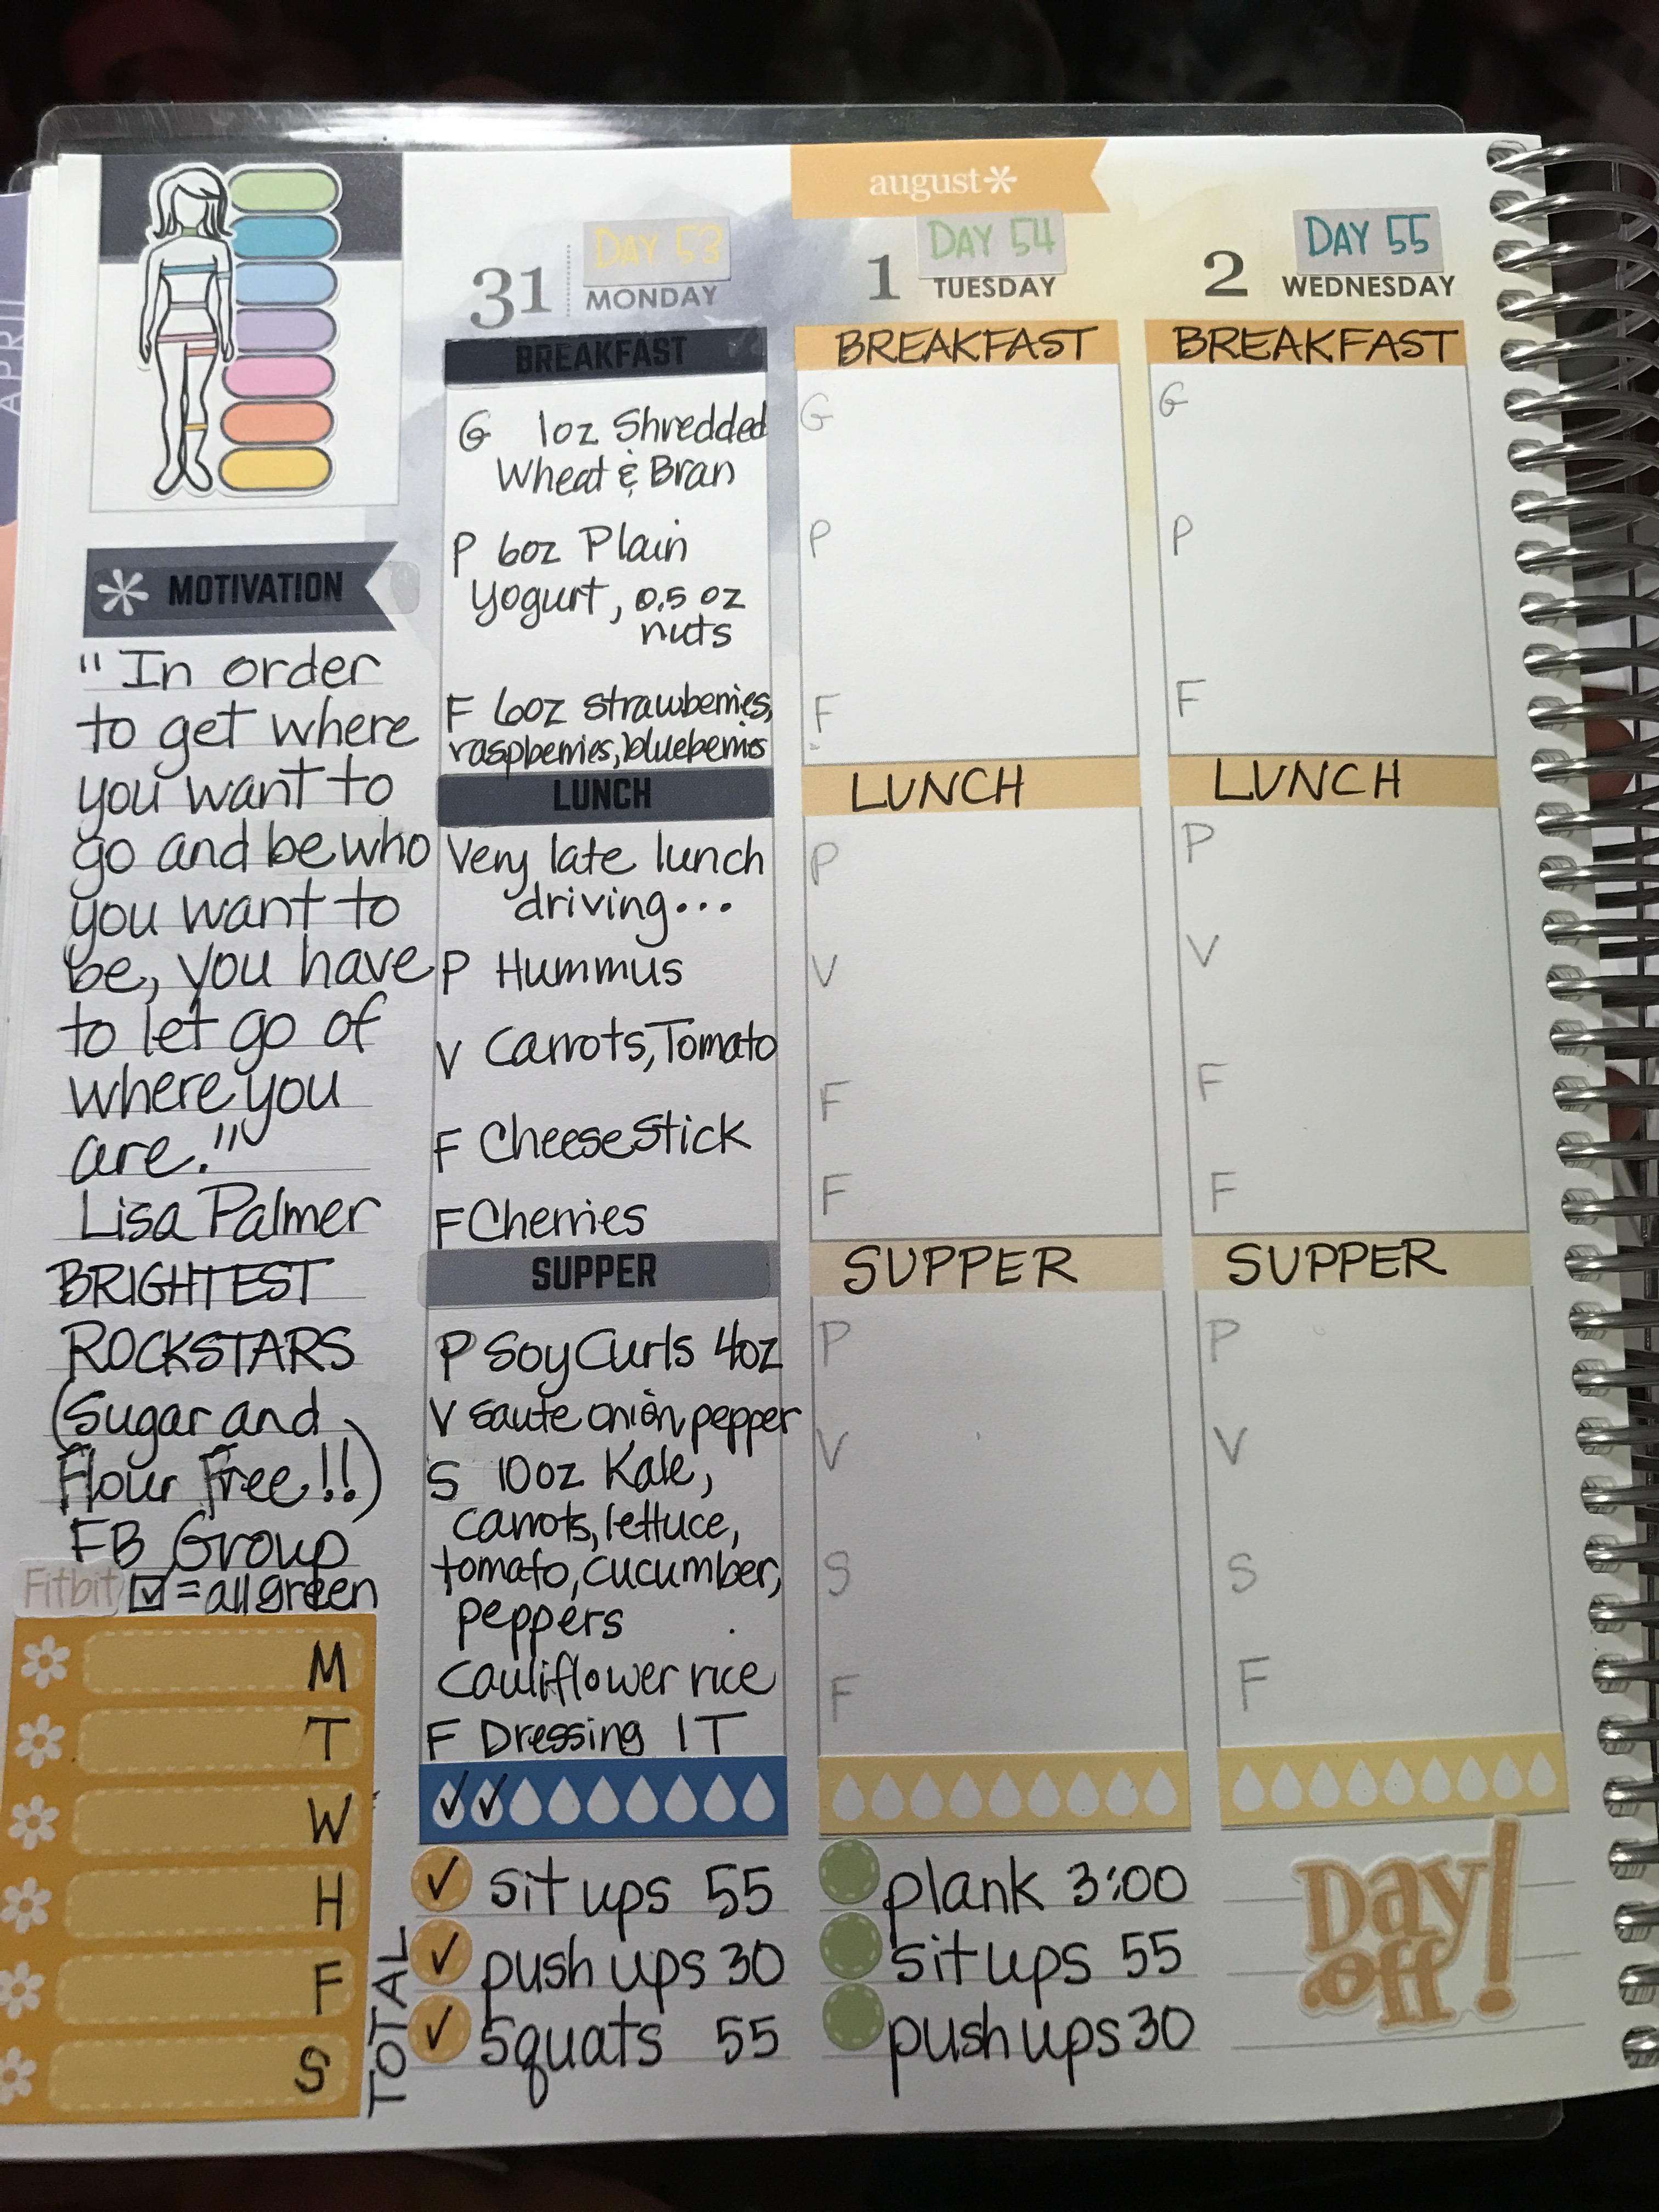 APRIL
* MOTIVATION
"In order
to get where
you want to
go and be who
you want to
be, you have
to let go of
where you
are."
Lisa Palmer
BRIGHTEST
ROCKSTARS
(Sugar and
Flour Free!!)
FB Group
Fitbit ☑ = all green
M
T
W
H
F
S
TOTAL
31 DAY 53
MONDAY
BREAKFAST
G 1oz Shredded
Wheat & Bran
P 6oz Plain
Yogurt, 0.5 oz
nuts
F 6oz strawberries,
raspberries, blueberries
LUNCH
Very late lunch
driving...
P Hummus
V Carrots, Tomato
F Cheese Stick
F Cherries
SUPPER
P Soy Curls 4oz
V saute onion, pepper
S 10oz Kale,
carrots, lettuce,
tomato, cucumber,
peppers
Cauliflower rice
F Dressing 1 T
✓ ✓
✓ sit ups 55
✓ push ups 30
✓ Squats 55
august*
1 DAY 54
TUESDAY
BREAKFAST
G
P
F
LUNCH
P
V
F
F
SUPPER
P
V
S
F
plank 3:00
sit ups 55
push ups 30
2 DAY 55
WEDNESDAY
BREAKFAST
G
P
F
LUNCH
P
V
F
F
SUPPER
P
V
S
F
Day
off!